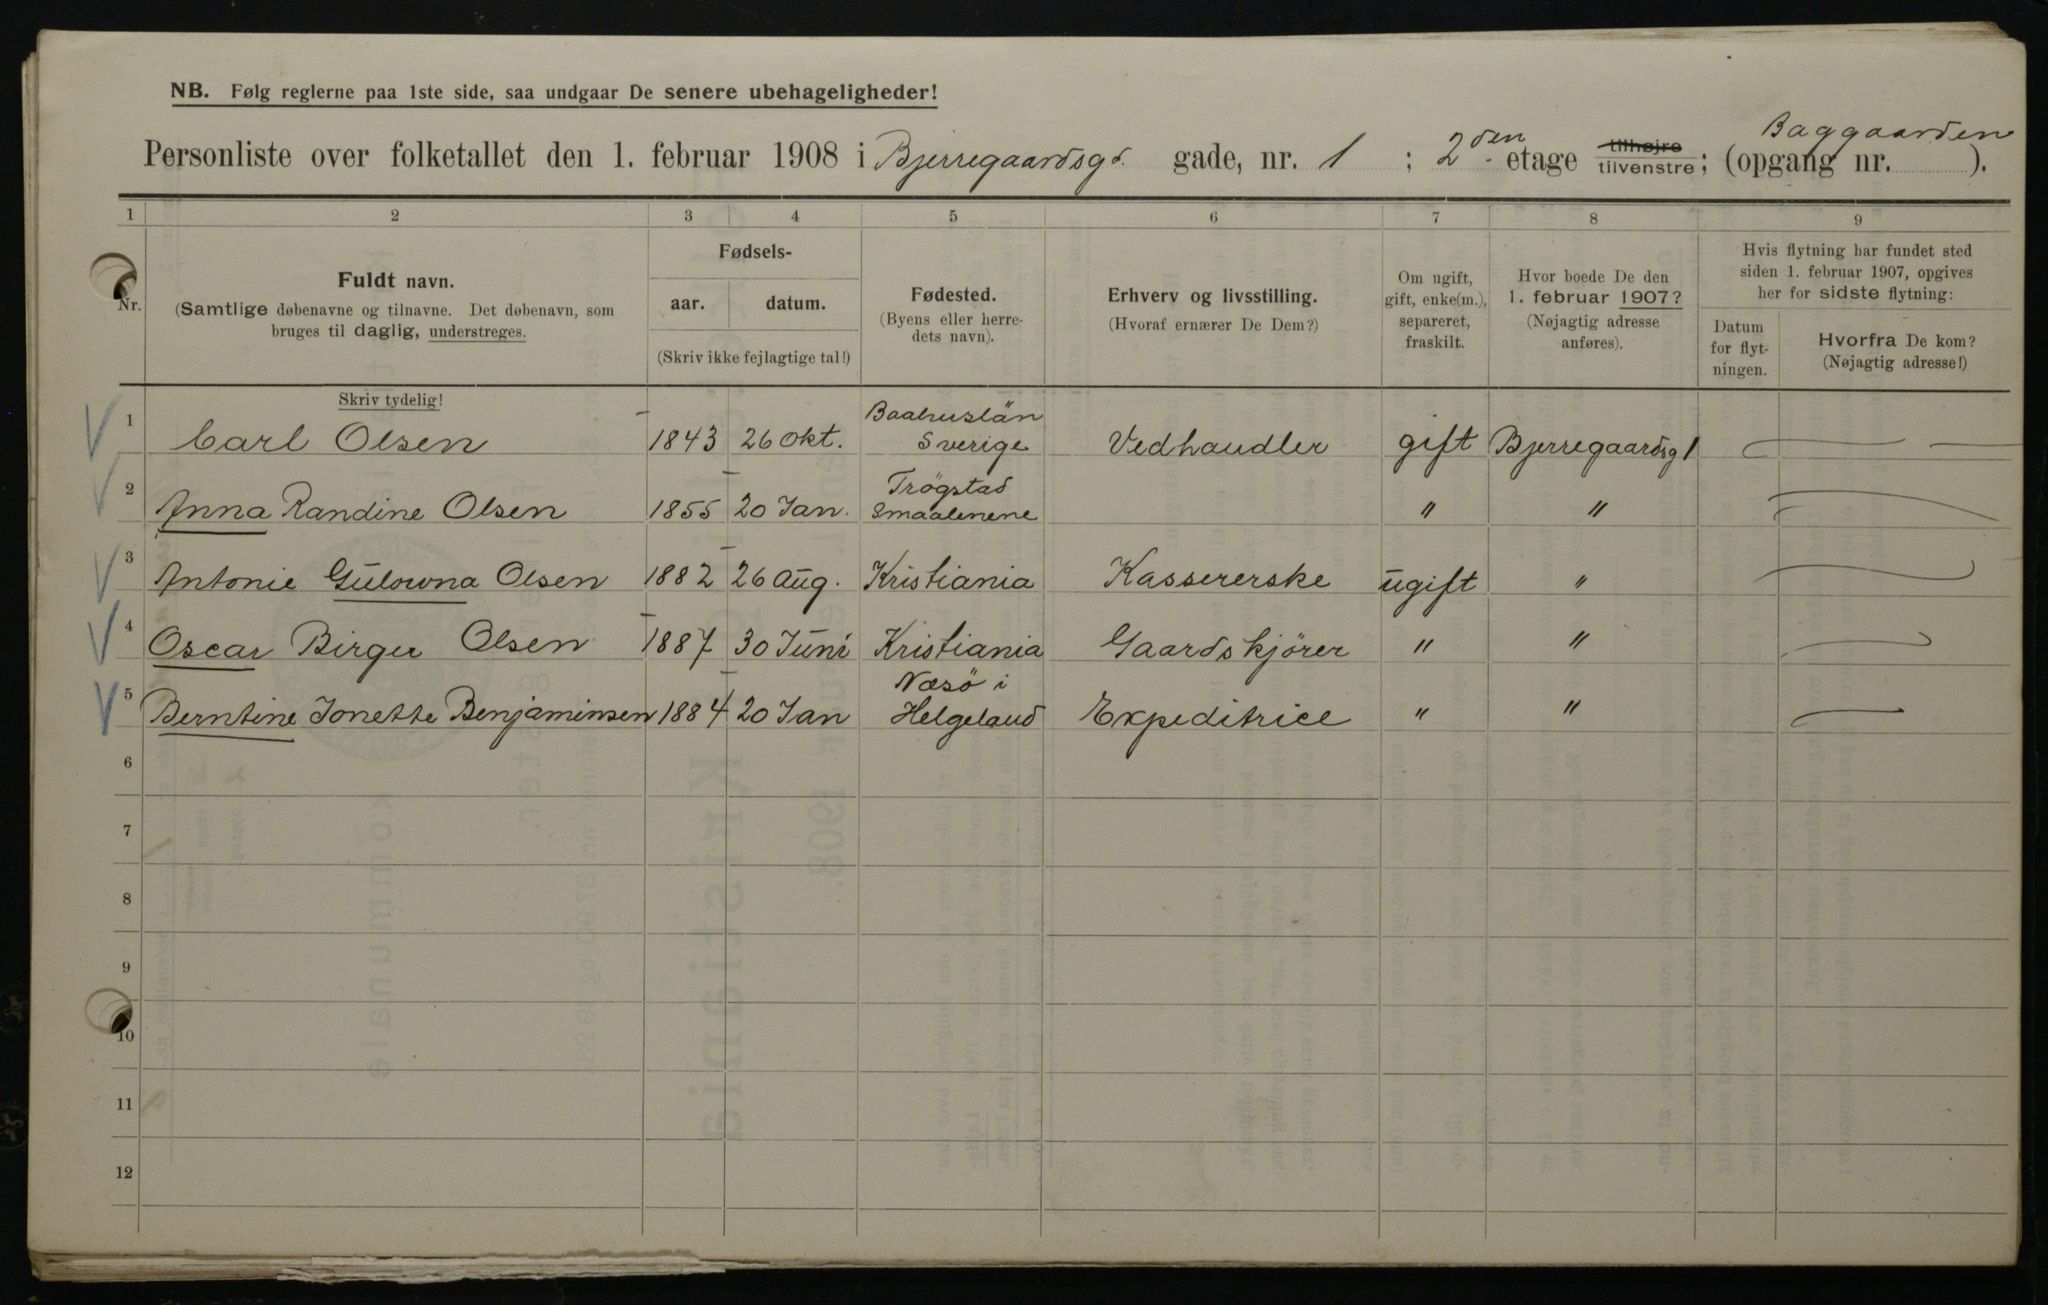 NB. Følg reglerne paa 1ste side, saa undgaar De senere ubehageligheder!
Baggaarden
Personliste over folketallet den 1. februar 1908 i Bjerregaardsgd. gade, nr. 1 ; 2den etage tilhøjre tilvenstre; (opgang nr. ).
1 2 3 4 5 6 7 8 9
Nr.
Fuldt navn.
(Samtlige døbenavne og tilnavne. Det døbenavn, som
bruges til daglig, understreges.
Fødsels-
aar. datum.
(Skriv ikke fejlagtige tal!)
Fødested.
(Byens eller herre-
dets navn).
Erhverv og livsstilling.
(Hvoraf ernærer De Dem?)
Om ugift,
gift, enke(m.),
separeret,
fraskilt.
Hvor boede De den
1. februar 1907?
(Nøjagtig adresse
anføres).
Hvis flytning har fundet sted
siden 1. februar 1907, opgives
her for sidste flytning:
Datum
for flyt-
ningen.
Hvorfra De kom?
(Nøjagtig adresse!)
Skriv tydelig!
1 Carl Olsen 1843 26 Okt. Baahuslän Sverige Vedhandler gift Bjerregaardsg 1
2 Anna Randine Olsen 1855 20 Jan. Trøgstad Smaalenene " "
3 Antonie Gulowna Olsen 1882 26 Aug. Kristiania Kassererske ugift "
4 Oscar Birger Olsen 1887 30 Juni Kristiania Gaardskjörer " "
5 Berntine Jonette Benjaminsen 1884 20 Jan Næsö i Helgeland Expeditrice " "
6
7
8
9
10
11
12